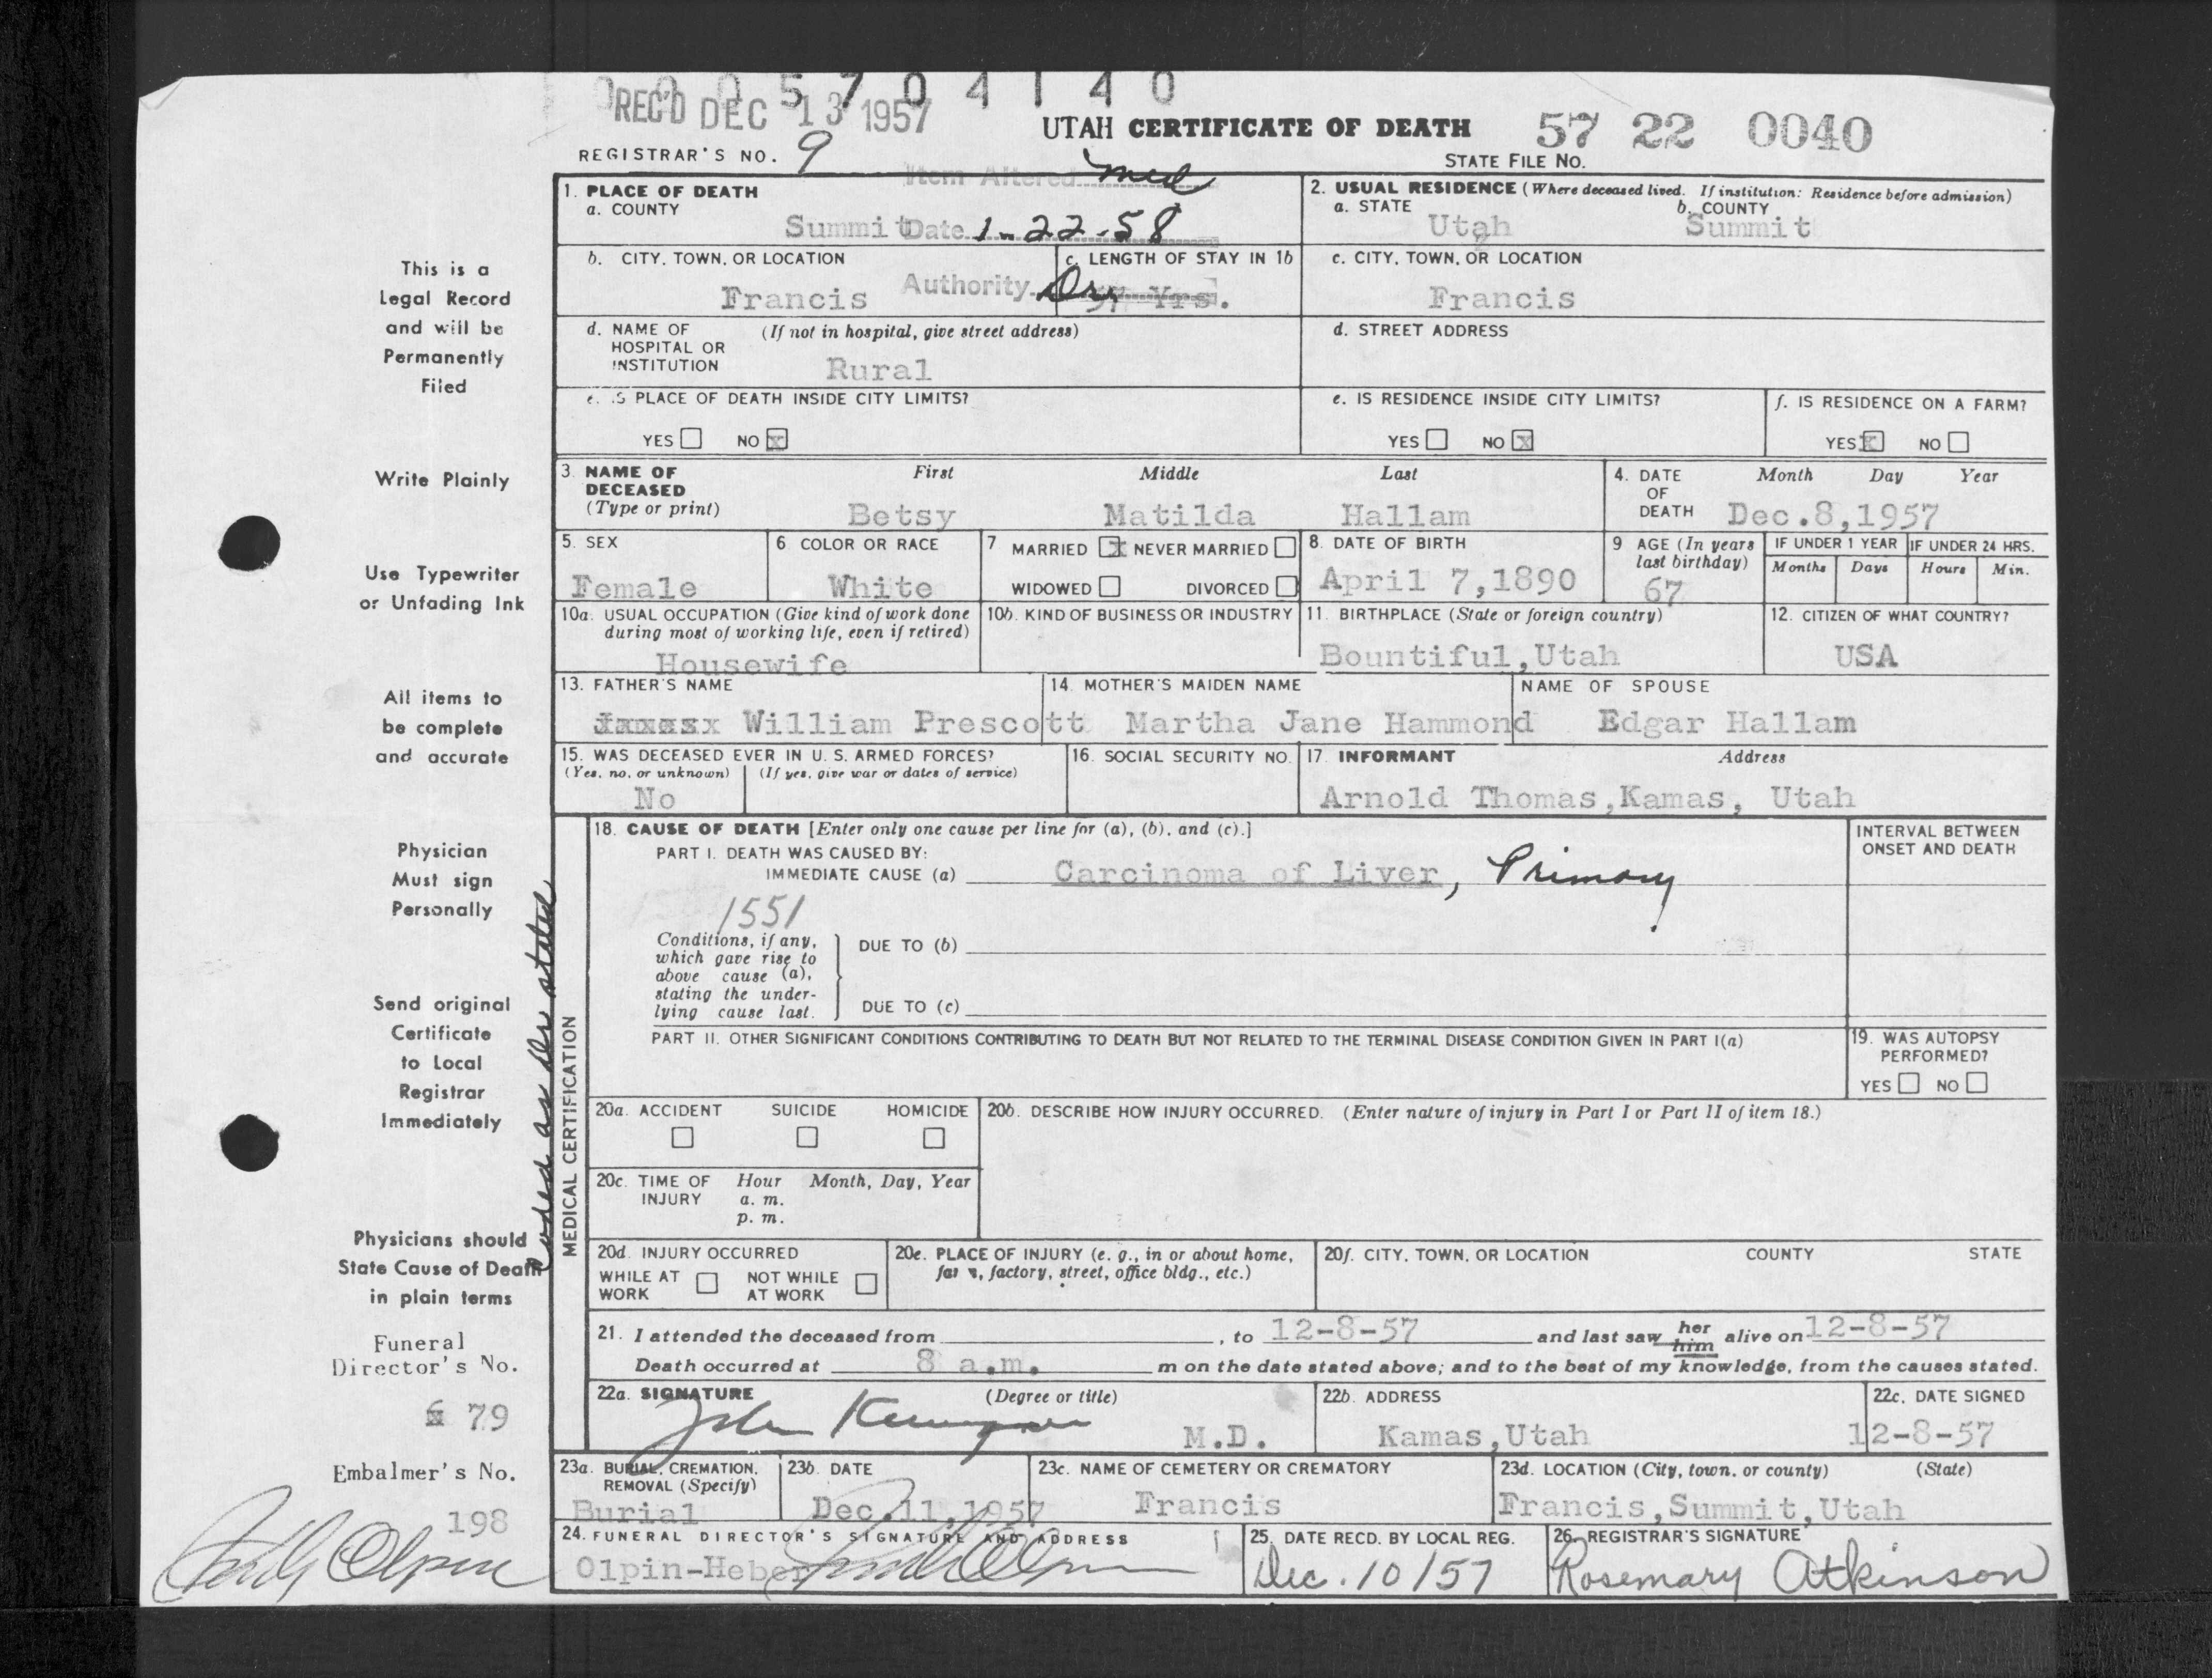 0005704140
REC'D DEC 13 1957
UTAH CERTIFICATE OF DEATH 57 22 0040
REGISTRAR'S NO. 9
STATE FILE NO.
Item Altered med
Date 1-22-58
Authority Dr.
1. PLACE OF DEATH
a. COUNTY
Summit
2. USUAL RESIDENCE (Where deceased lived. If institution: Residence before admission)
a. STATE b. COUNTY
Utah Summit
b. CITY, TOWN, OR LOCATION c. LENGTH OF STAY IN 1b
Francis 57 Yrs.
c. CITY, TOWN, OR LOCATION
Francis
d. NAME OF HOSPITAL OR INSTITUTION (If not in hospital, give street address)
Rural
d. STREET ADDRESS
e. IS PLACE OF DEATH INSIDE CITY LIMITS?
YES NO x
e. IS RESIDENCE INSIDE CITY LIMITS?
YES NO x
f. IS RESIDENCE ON A FARM?
YES x NO
3. NAME OF DECEASED (Type or print) First Middle Last
Betsy Matilda Hallam
4. DATE OF DEATH Month Day Year
Dec.8,1957
5. SEX
Female
6 COLOR OR RACE
White
7 MARRIED x NEVER MARRIED
WIDOWED DIVORCED
8. DATE OF BIRTH
April 7,1890
9 AGE (In years last birthday)
67
IF UNDER 1 YEAR IF UNDER 24 HRS.
Months Days Hours Min.
10a. USUAL OCCUPATION (Give kind of work done during most of working life, even if retired)
Housewife
10b. KIND OF BUSINESS OR INDUSTRY
11. BIRTHPLACE (State or foreign country)
Bountiful,Utah
12. CITIZEN OF WHAT COUNTRY?
USA
13. FATHER'S NAME
William Prescott
14. MOTHER'S MAIDEN NAME
Martha Jane Hammond
NAME OF SPOUSE
Edgar Hallam
15. WAS DECEASED EVER IN U. S. ARMED FORCES?
(Yes, no, or unknown) (If yes, give war or dates of service)
No
16. SOCIAL SECURITY NO.
17. INFORMANT Address
Arnold Thomas,Kamas, Utah
MEDICAL CERTIFICATION
18. CAUSE OF DEATH [Enter only one cause per line for (a), (b), and (c).]
PART I. DEATH WAS CAUSED BY:
IMMEDIATE CAUSE (a) Carcinoma of Liver, Primary
1551
INTERVAL BETWEEN ONSET AND DEATH
Conditions, if any,
which gave rise to
above cause (a),
stating the under-
lying cause last.
DUE TO (b)
DUE TO (c)
PART II. OTHER SIGNIFICANT CONDITIONS CONTRIBUTING TO DEATH BUT NOT RELATED TO THE TERMINAL DISEASE CONDITION GIVEN IN PART I(a)
19. WAS AUTOPSY PERFORMED?
YES NO
20a. ACCIDENT SUICIDE HOMICIDE
20b. DESCRIBE HOW INJURY OCCURRED. (Enter nature of injury in Part I or Part II of item 18.)
20c. TIME OF INJURY Hour Month, Day, Year
a. m.
p. m.
20d. INJURY OCCURRED
WHILE AT WORK NOT WHILE AT WORK
20e. PLACE OF INJURY (e. g., in or about home,
farm, factory, street, office bldg., etc.)
20f. CITY, TOWN, OR LOCATION COUNTY STATE
21. I attended the deceased from , to 12-8-57 and last saw her him alive on 12-8-57
Death occurred at 8 a.m. m on the date stated above; and to the best of my knowledge, from the causes stated.
22a. SIGNATURE (Degree or title)
John M.D.
22b. ADDRESS
Kamas,Utah
22c. DATE SIGNED
12-8-57
23a. BURIAL, CREMATION, REMOVAL (Specify)
Burial
23b. DATE
Dec.11,1957
23c. NAME OF CEMETERY OR CREMATORY
Francis
23d. LOCATION (City, town, or county) (State)
Francis,Summit,Utah
24. FUNERAL DIRECTOR'S SIGNATURE AND ADDRESS
Olpin-Heber Olpin
25. DATE RECD. BY LOCAL REG.
Dec. 10/57
26. REGISTRAR'S SIGNATURE
Rosemary Atkinson
This is a
Legal Record
and will be
Permanently
Filed
Write Plainly
Use Typewriter
or Unfading Ink
All items to
be complete
and accurate
Physician
Must sign
Personally
Send original
Certificate
to Local
Registrar
Immediately
Physicians should
State Cause of Death
in plain terms
Coded as Dr stated
Funeral
Director's No.
79
Embalmer's No.
198
Olpin